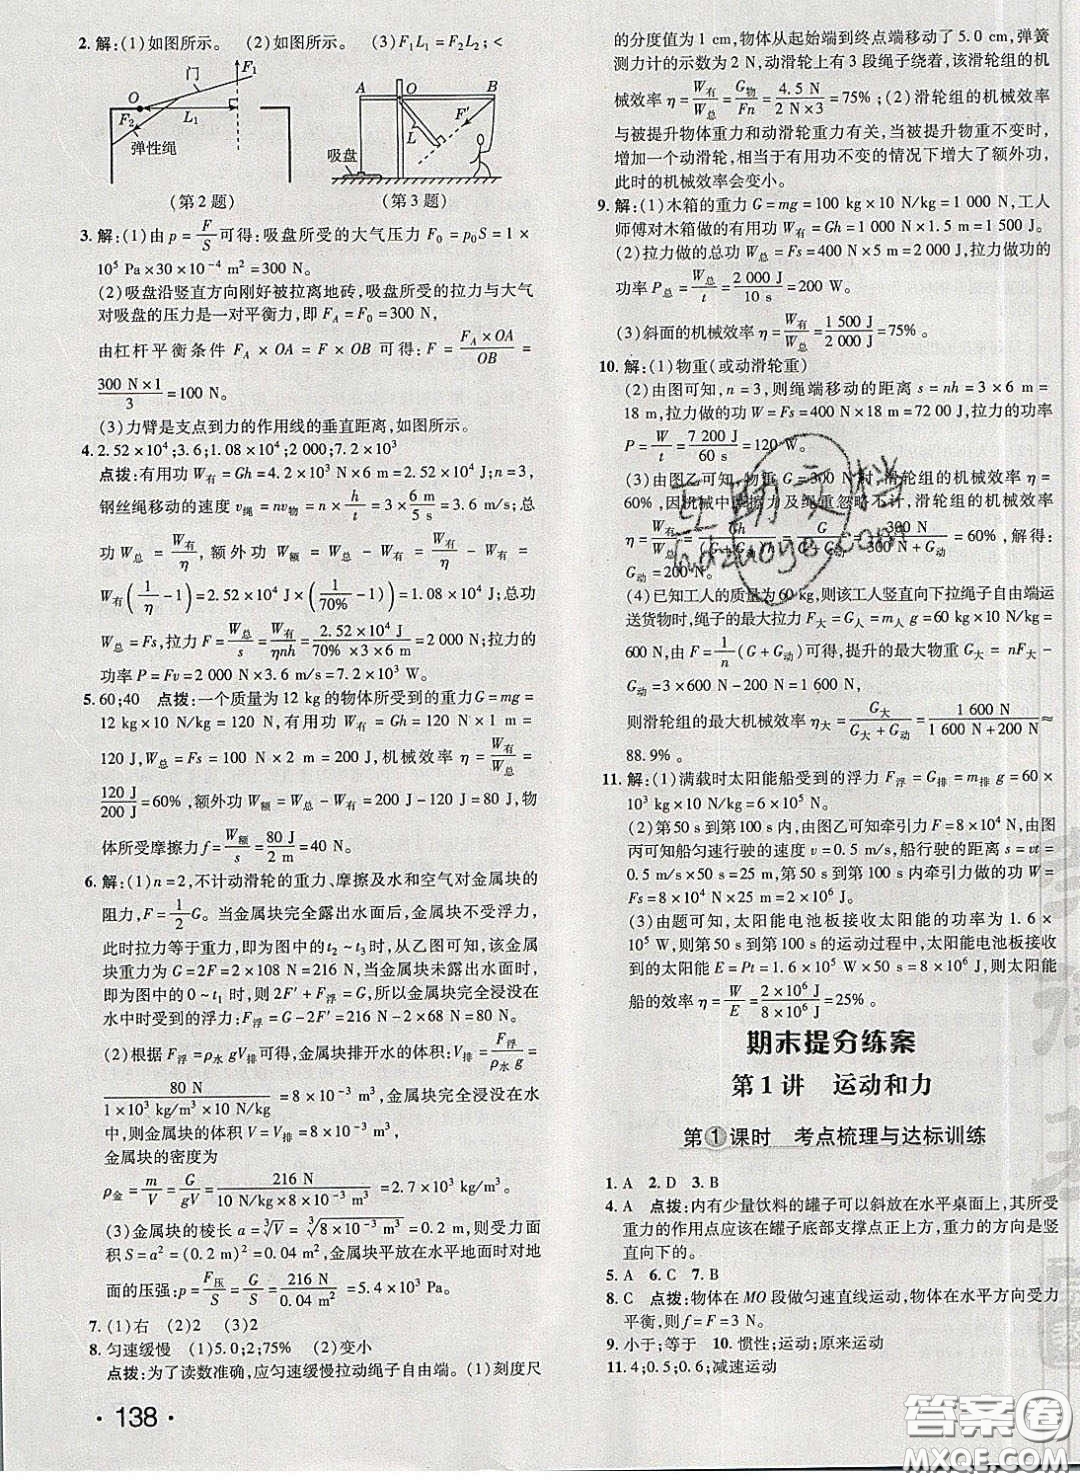 2. 解:(1)如图所示。 (2)如图所示。 (3)F₁L₁=F₂L₂;<
门
F₁
O
F₂
L₁
弹性绳
(第2题)
A
O
B
F′
L
吸盘
(第3题)
3. 解:(1)由 p=F/S 可得:吸盘所受的大气压力 F₀=p₀S=1×
10⁵ Pa×30×10⁻⁴ m²=300 N。
(2)吸盘沿竖直方向刚好被拉离地砖,吸盘所受的拉力与大气
对吸盘的压力是一对平衡力,即 F_A=F₀=300 N,
由杠杆平衡条件 F_A×OA=F×OB 可得:F=(F_A×OA)/OB=
(300 N×1)/3=100 N。
(3)力臂是支点到力的作用线的垂直距离,如图所示。
4. 2.52×10⁴;3.6;1.08×10⁴;2 000;7.2×10³
点拨:有用功 W有=Gh=4.2×10³ N×6 m=2.52×10⁴ J;n=3,
钢丝绳移动的速度 v绳=nv物=n×h/t=3×(6 m)/(5 s)=3.6 m/s;总
功 W总=W有/η,额外功 W额=W总-W有=W有/η-W有=
W有(1/η-1)=2.52×10⁴ J×(1/70%-1)=1.08×10⁴ J;总功
W总=Fs,拉力 F=W总/s=W有/(ηnh)=(2.52×10⁴ J)/(70%×3×6 m)=2 000 N;拉力的
功率 P=Fv=2 000 N×3.6 m/s=7.2×10³ W。
5. 60;40 点拨:一个质量为12 kg的物体所受到的重力G=mg=
12 kg×10 N/kg=120 N,有用功 W有=Gh=120 N×1 m=
120 J,W总=Fs=100 N×2 m=200 J,机械效率 η=W有/W总=
120 J/200 J=60%,额外功 W额=W总-W有=200 J-120 J=80 J,物
体所受摩擦力f=W额/s=80 J/2 m=40 N。
6. 解:(1)n=2,不计动滑轮的重力、摩擦及水和空气对金属块的
阻力,F=1/2G。当金属块完全露出水面后,金属块不受浮力,
此时拉力等于重力,即为图中的t₂~t₃时,从乙图可知,该金属
块重力为G=2F=2×108 N=216 N,金属块未露出水面时,
即为图中的0~t₁时,则2F′+F浮=G,所以金属块完全浸没在
水中时受到的浮力:F浮=G-2F′=216 N-2×68 N=80 N。
(2)根据 F浮=ρ水gV排可得,金属块排开水的体积:V排=F浮/(ρ水g)=
80 N/(1×10³ kg/m³×10 N/kg)=8×10⁻³ m³。
则金属块的体积 V=V排=8×10⁻³ m³,
金属块的密度
ρ金=m/V=G/(gV)=216 N/(10 N/kg×8×10⁻³ m³)=2.7×10³ kg/m³。
(3)金属块的棱长 a=∛V=∛(8×10⁻³ m³)=0.2 m,则受力面
积 S=a²=(0.2 m)²=0.04 m²,金属块平放在水平地面时对地
面的压强:p=F压/S=G/S=216 N/0.04 m²=5.4×10³ Pa。
7. (1)右 (2)2 (3)2
8. 匀速缓慢 (1)5.0;2;75% (2)变小
点拨:为了读数准确,应匀速缓慢拉动绳子自由端。(1)刻度尺
· 138 ·
的分度值为1 cm,物体从起始端到终点端移动了5.0 cm,弹簧
测力计的示数为2 N,动滑轮上有3段绳子绕着,该滑轮组的机
械效率 η=W有/W总=G物/Fn=4.5 N/(2 N×3)=75%;(2)滑轮组的机械效率
与被提升物体重力和动滑轮重力有关,被提升物重不变时,
增加一个动滑轮,相当于有用功不变的情况下增大了额外功,
此时的机械效率会变小。
9. 解:(1)木箱的重力 G=mg=100 kg×10 N/kg=1 000 N,工人
师傅对木箱做的有用功 W有=Gh=1 000 N×1.5 m=1 500 J。
(2)拉力做的总功 W总=Fs=400 N×5 m=2 000 J,拉力的总
功率 P总=W总/t=2 000 J/10 s=200 W。
(3)斜面的机械效率 η=W有/W总=1 500 J/2 000 J=75%。
10. 解:(1)物重(或动滑轮重)
(2)由图可知,n=3,则绳端移动的距离 s=nh=3×6 m=
18 m,拉力做的功 W=Fs=400 N×18 m=72 00 J,拉力的功率
P=W/t=7 200 J/60 s=120 W。
(3)由图乙可知,物重 G=300 N 时,滑轮组的机械效率 η=
60%,因机械中摩擦力及绳重忽略不计,滑轮组的机械效率
η=W有/W总=Gh/(G+G动)h=G/(G+G动)=300 N/(300 N+G动)=60%,解得:
G动=200 N。
(4)已知工人的质量为60 kg,则该工人竖直向下拉绳子自由端运
送货物时,绳子的最大拉力F大=G人=m人g=60 kg×10 N/kg=
600 N,由 F=1/n(G+G动)可得,提升的最大物重 G大=nF大-
G动=3×600 N-200 N=1 600 N,
则滑轮组的最大机械效率 η大=G大/(G大+G动)=1 600 N/(1 600 N+200 N)≈
88.9%。
11. 解:(1)满载时太阳能船受到的浮力 F浮=G排=m排g=60×
10³ kg×10 N/kg=6×10⁵ N。
(2)第50 s到第100 s内,由图乙可知牵引力 F=8×10⁴ N,由图
丙可知船匀速行驶的速度 v=0.5 m/s,船行驶的距离 s=vt=
0.5 m/s×50 s=25 m,这段时间内牵引力做的功 W=
Fs=8×10⁴ N×25 m=2×10⁶ J。
(3)由题可知,太阳能电池板接收太阳能的功率为1.6×
10⁵ W,则第50 s到第100 s的运动过程中,太阳能电池板接收到
的太阳能 E=Pt=1.6×10⁵ W×50 s=8×10⁶ J,太阳能
船的效率 η=W/E=2×10⁶ J/8×10⁶ J=25%。
期末提分练案
第1讲 运动和力
第①课时 考点梳理与达标训练
1. A 2. D 3. B
4. A 点拨:内有少量饮料的罐子可以斜放在水平桌面上,其所受
重力的作用点应该在罐子底部支撑点正上方,重力的方向是竖
直向下的。
5. A 6. C 7. B
8. C 点拨:物体在MO段做匀速直线运动,物体在水平方向受力
平衡,则 f=F=3 N。
9. 小于;等于 10. 惯性;运动;原来运动
11. 4;0.5;0.6;减速运动
互助文档
hdzuoye.com
答案圈
MXQE.COM